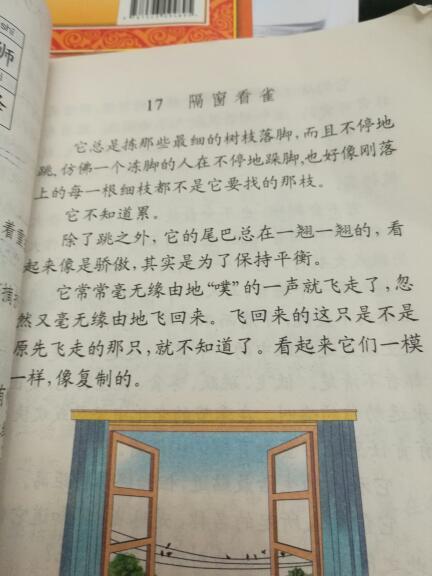 17 隔窗看雀
它总是拣那些最细的树枝落脚,而且不停地
跳,仿佛一个冻脚的人在不停地跺脚,也好像刚落
上的每一根细枝都不是它要找的那枝。
它不知道累。
除了跳之外,它的尾巴总在一翘一翘的,看
起来像是骄傲,其实是为了保持平衡。
它常常毫无缘由地“噗”的一声就飞走了,忽
然又毫无缘由地飞回来。飞回来的这只是不是
原先飞走的那只,就不知道了。看起来它们一模
一样,像复制的。
shī
师